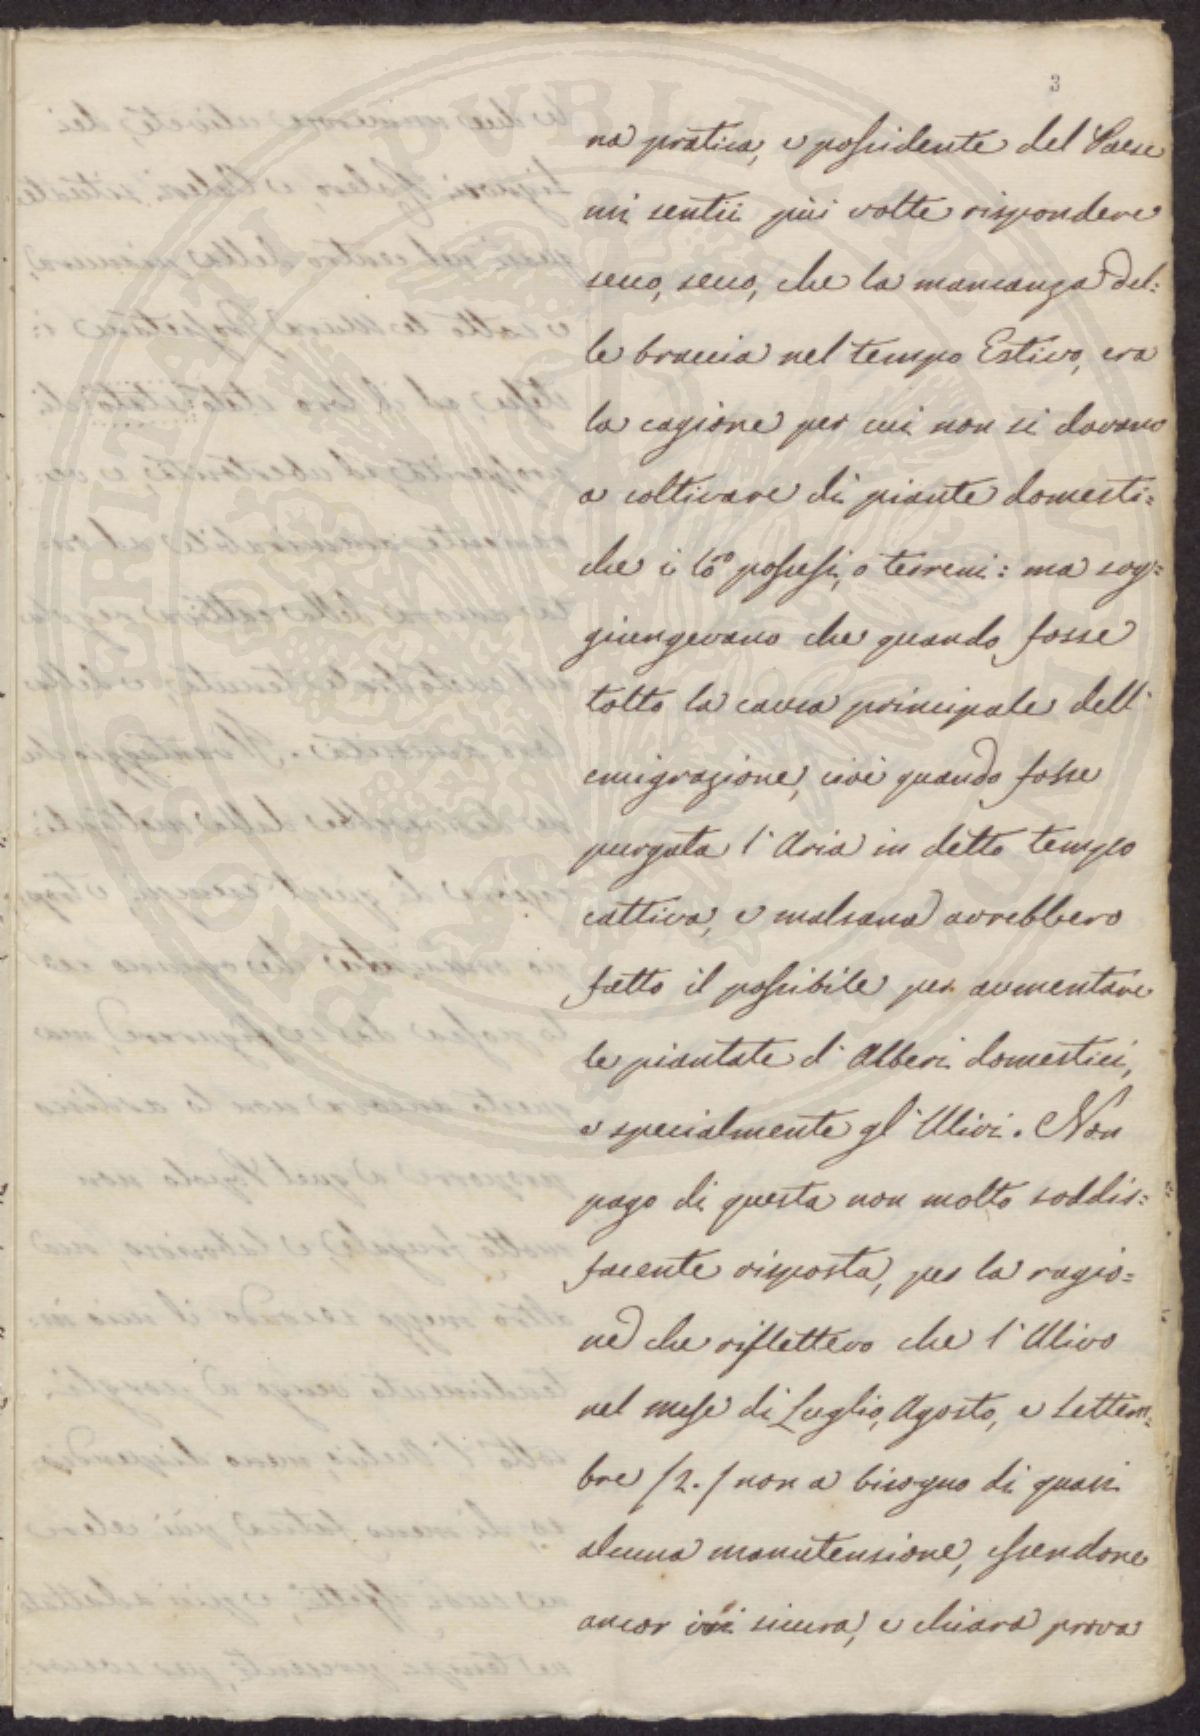 3
na pratica, e possidente del Paese
mi sentii più volte rispondere
secco, secco, che la mancanza del:
le braccia nel tempo Estivo, era
la cagione per cui non si davano
a coltivare di piante domesti:
che i loro possessi, o terreni: ma sog:
giungevano che quando fosse
tolto la causa principale dell'
emigrazione, cioè quando fosse
purgata l'Aria in detto tempo
cattiva, e malsana avrebbero
fatto il possibile per aumentare
le piantate d'Alberi domestici,
e specialmente gl'Ulivi. Non
pago di questa non molto soddis:
facente risposta, per la ragio:
ne che riflettevo che l'Ulivo
nel mese di Luglio, Agosto, e Settem:
bre /2./ non a bisogno di quasi
alcuna manutensione, essendone
ancor ivi sicura, e chiara prova